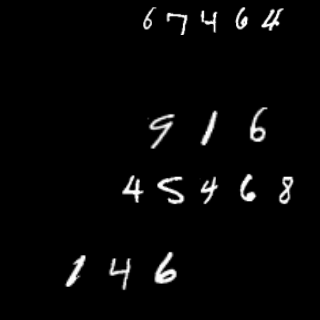 67464
916
45468
146